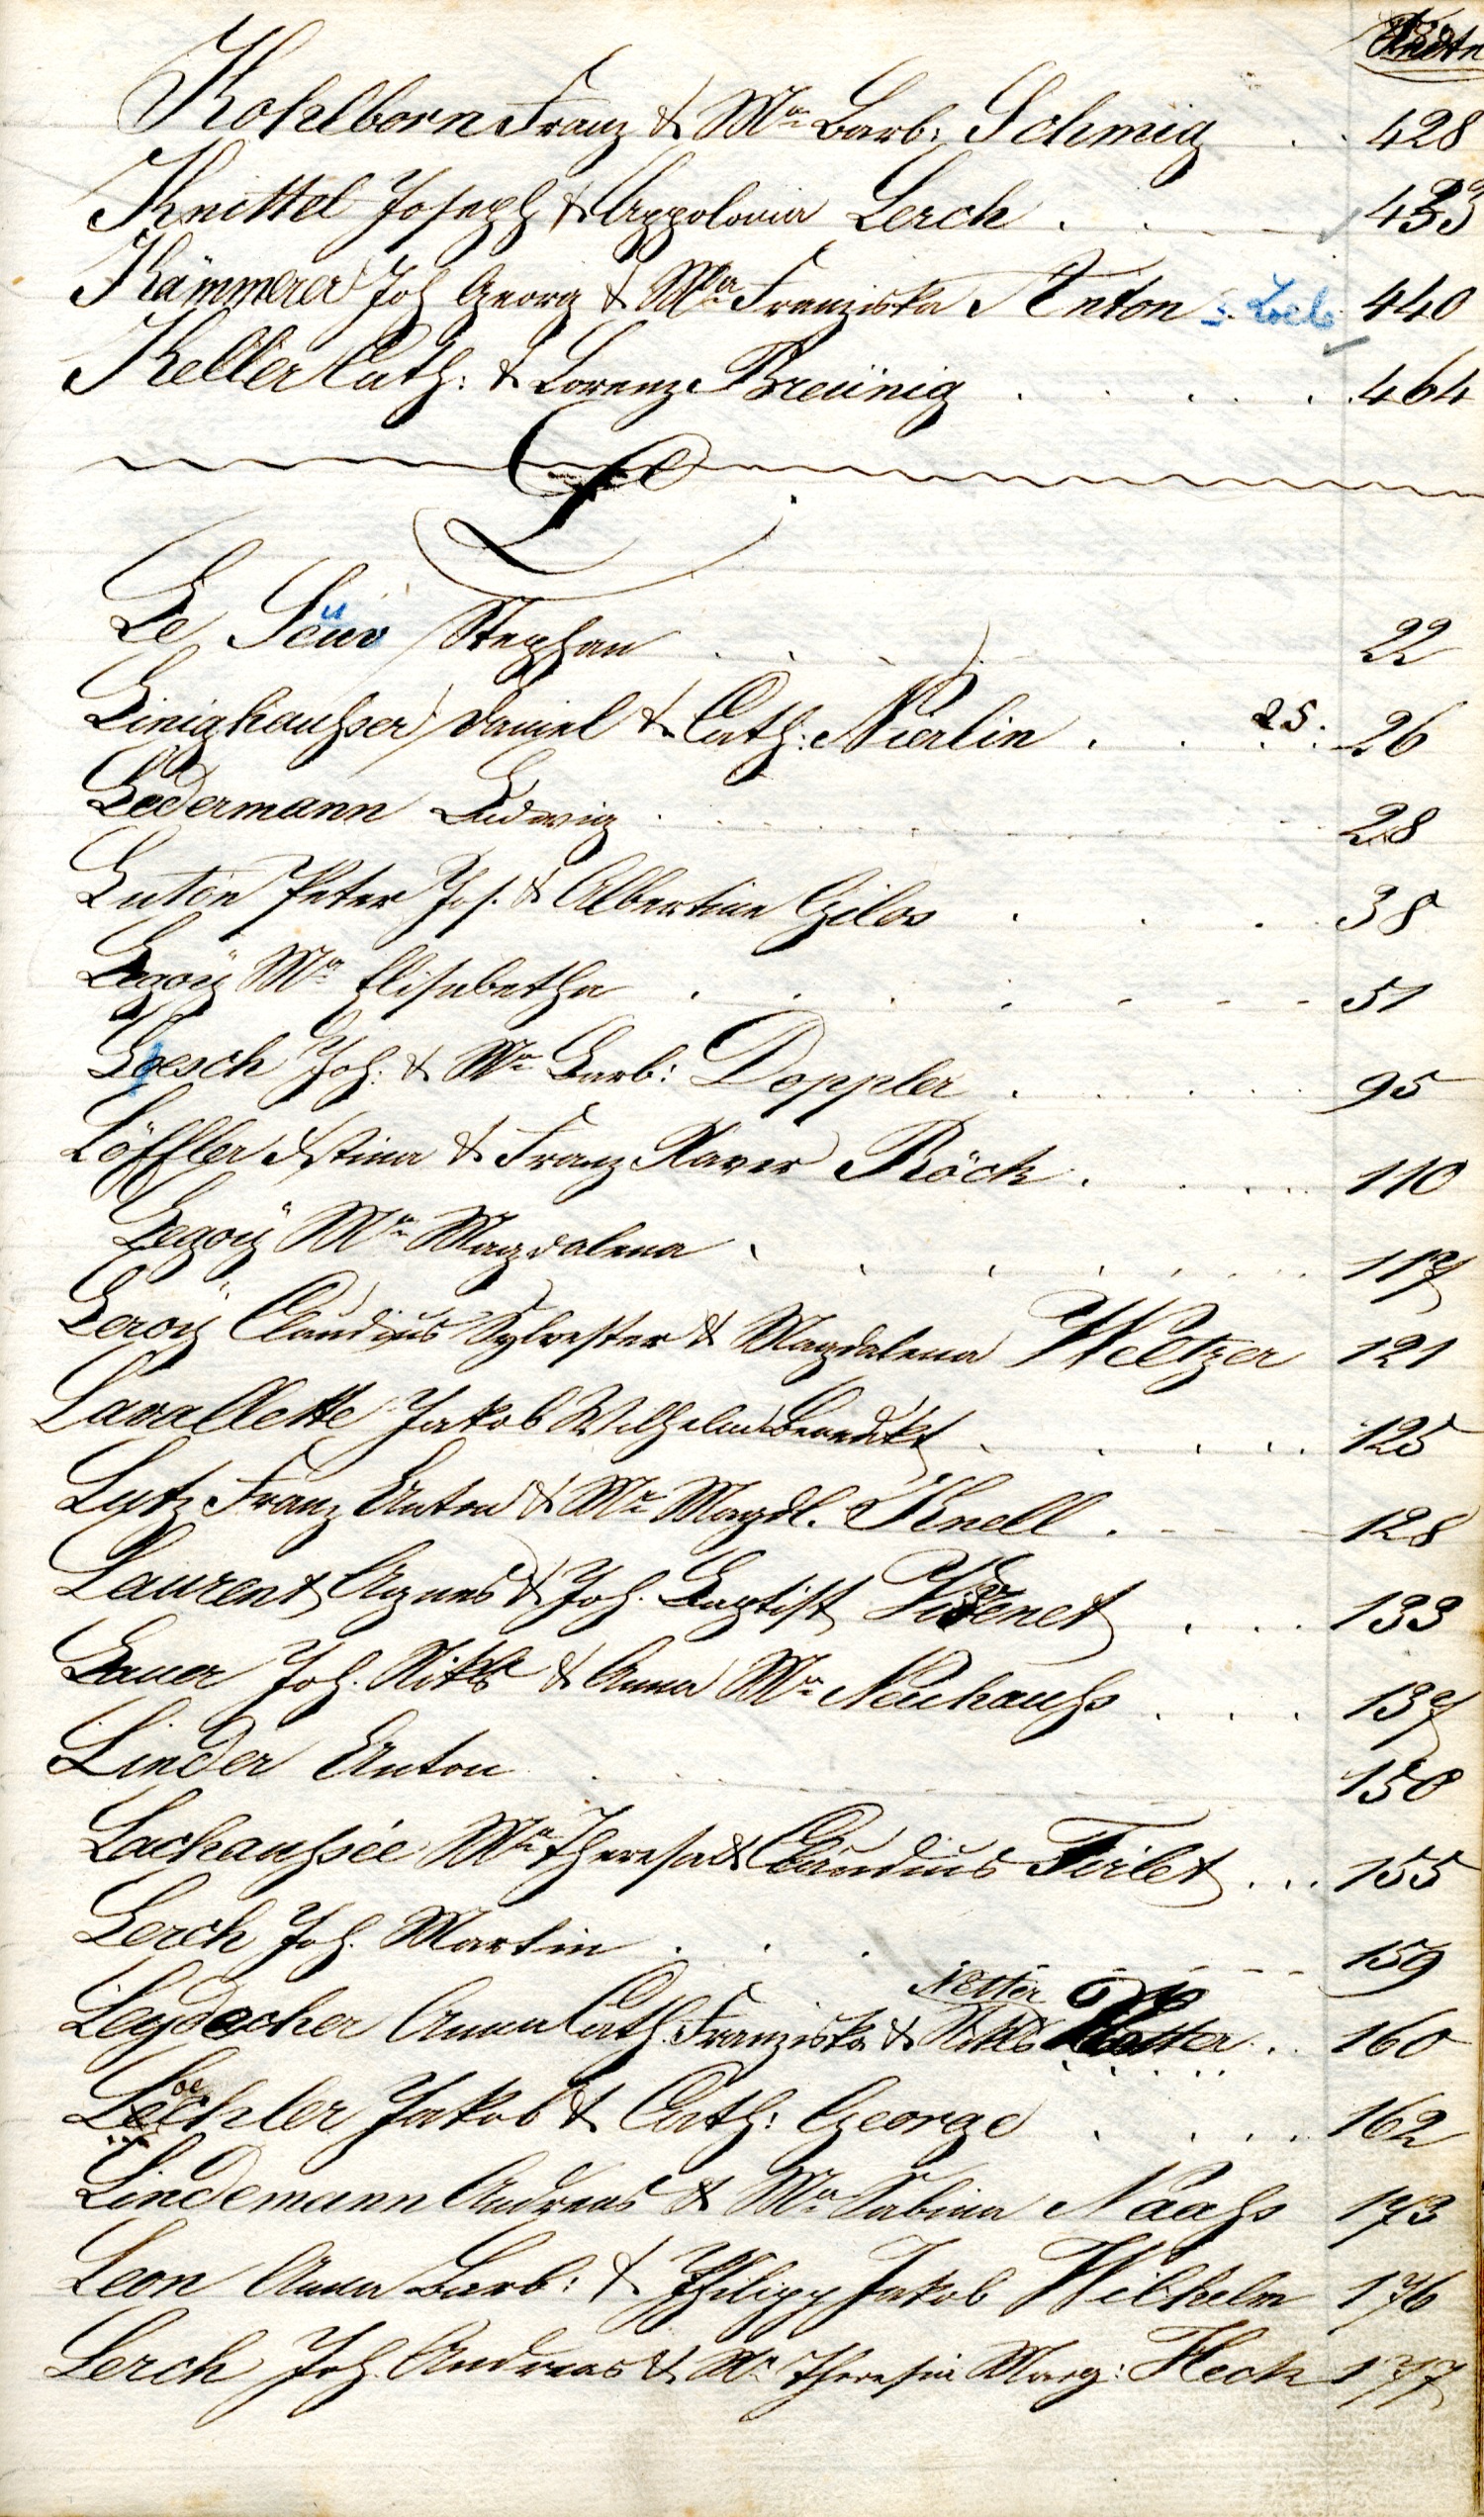 Kohlborn Franz & Mª Barb: Schmig . . 428
Knittel Joseph & Appolonia Lerch . . . . 433
Kämmerer Joh Georg & Mª Franziska Anton 440
Keller Cath: & Lorenz Breünig . . . . . 464
L
Le Stephan . . . . 22
Linighausser Daniel & Cath: Nierlin . . 25. 26
Ledermann Ludwig . . . . 28
Luton Peter Jos. & Albertine Gilos . . . 38
Legoÿ Mª Elisabetha . . . . . . . 51
Loesch Joh: & Mª Barb: Doppler . . . . 95
Löffler Xstina & Franz Xaver Röck . . . . 110
Legoÿ Mª Magdalena . . . . . . . 117
Leroÿ Claudius Sylvester & Magdalena Weltzer 121
Lavallette Jakob Wilhelm Benedikt . . . . . 125
Lutz Franz Anton & Mª Magdl. Knell . . . . 128
Laurent Agnes & Joh. Baptist . . . 133
Lauer Joh. Nikls & Anna Mª Neuhauss . . . 137
Linder Anton . . . . 150
Lachaussée Mª Theresa & Claudius Firlet . . . 155
Lerch Joh. Martin . . . . . . 159
Netter
Leydecher Anna Cath. Franziska & Nikls . . 160
oe
Lechler Jakob & Cath: George . . . . 162
Lindemann Andreas & Mª Sabina Naass 173
Leon Anna Barb: & Philipp Jakob Wilhelm 176
Lerch Joh. Andreas & Mª Theresia Marg: Heck 177